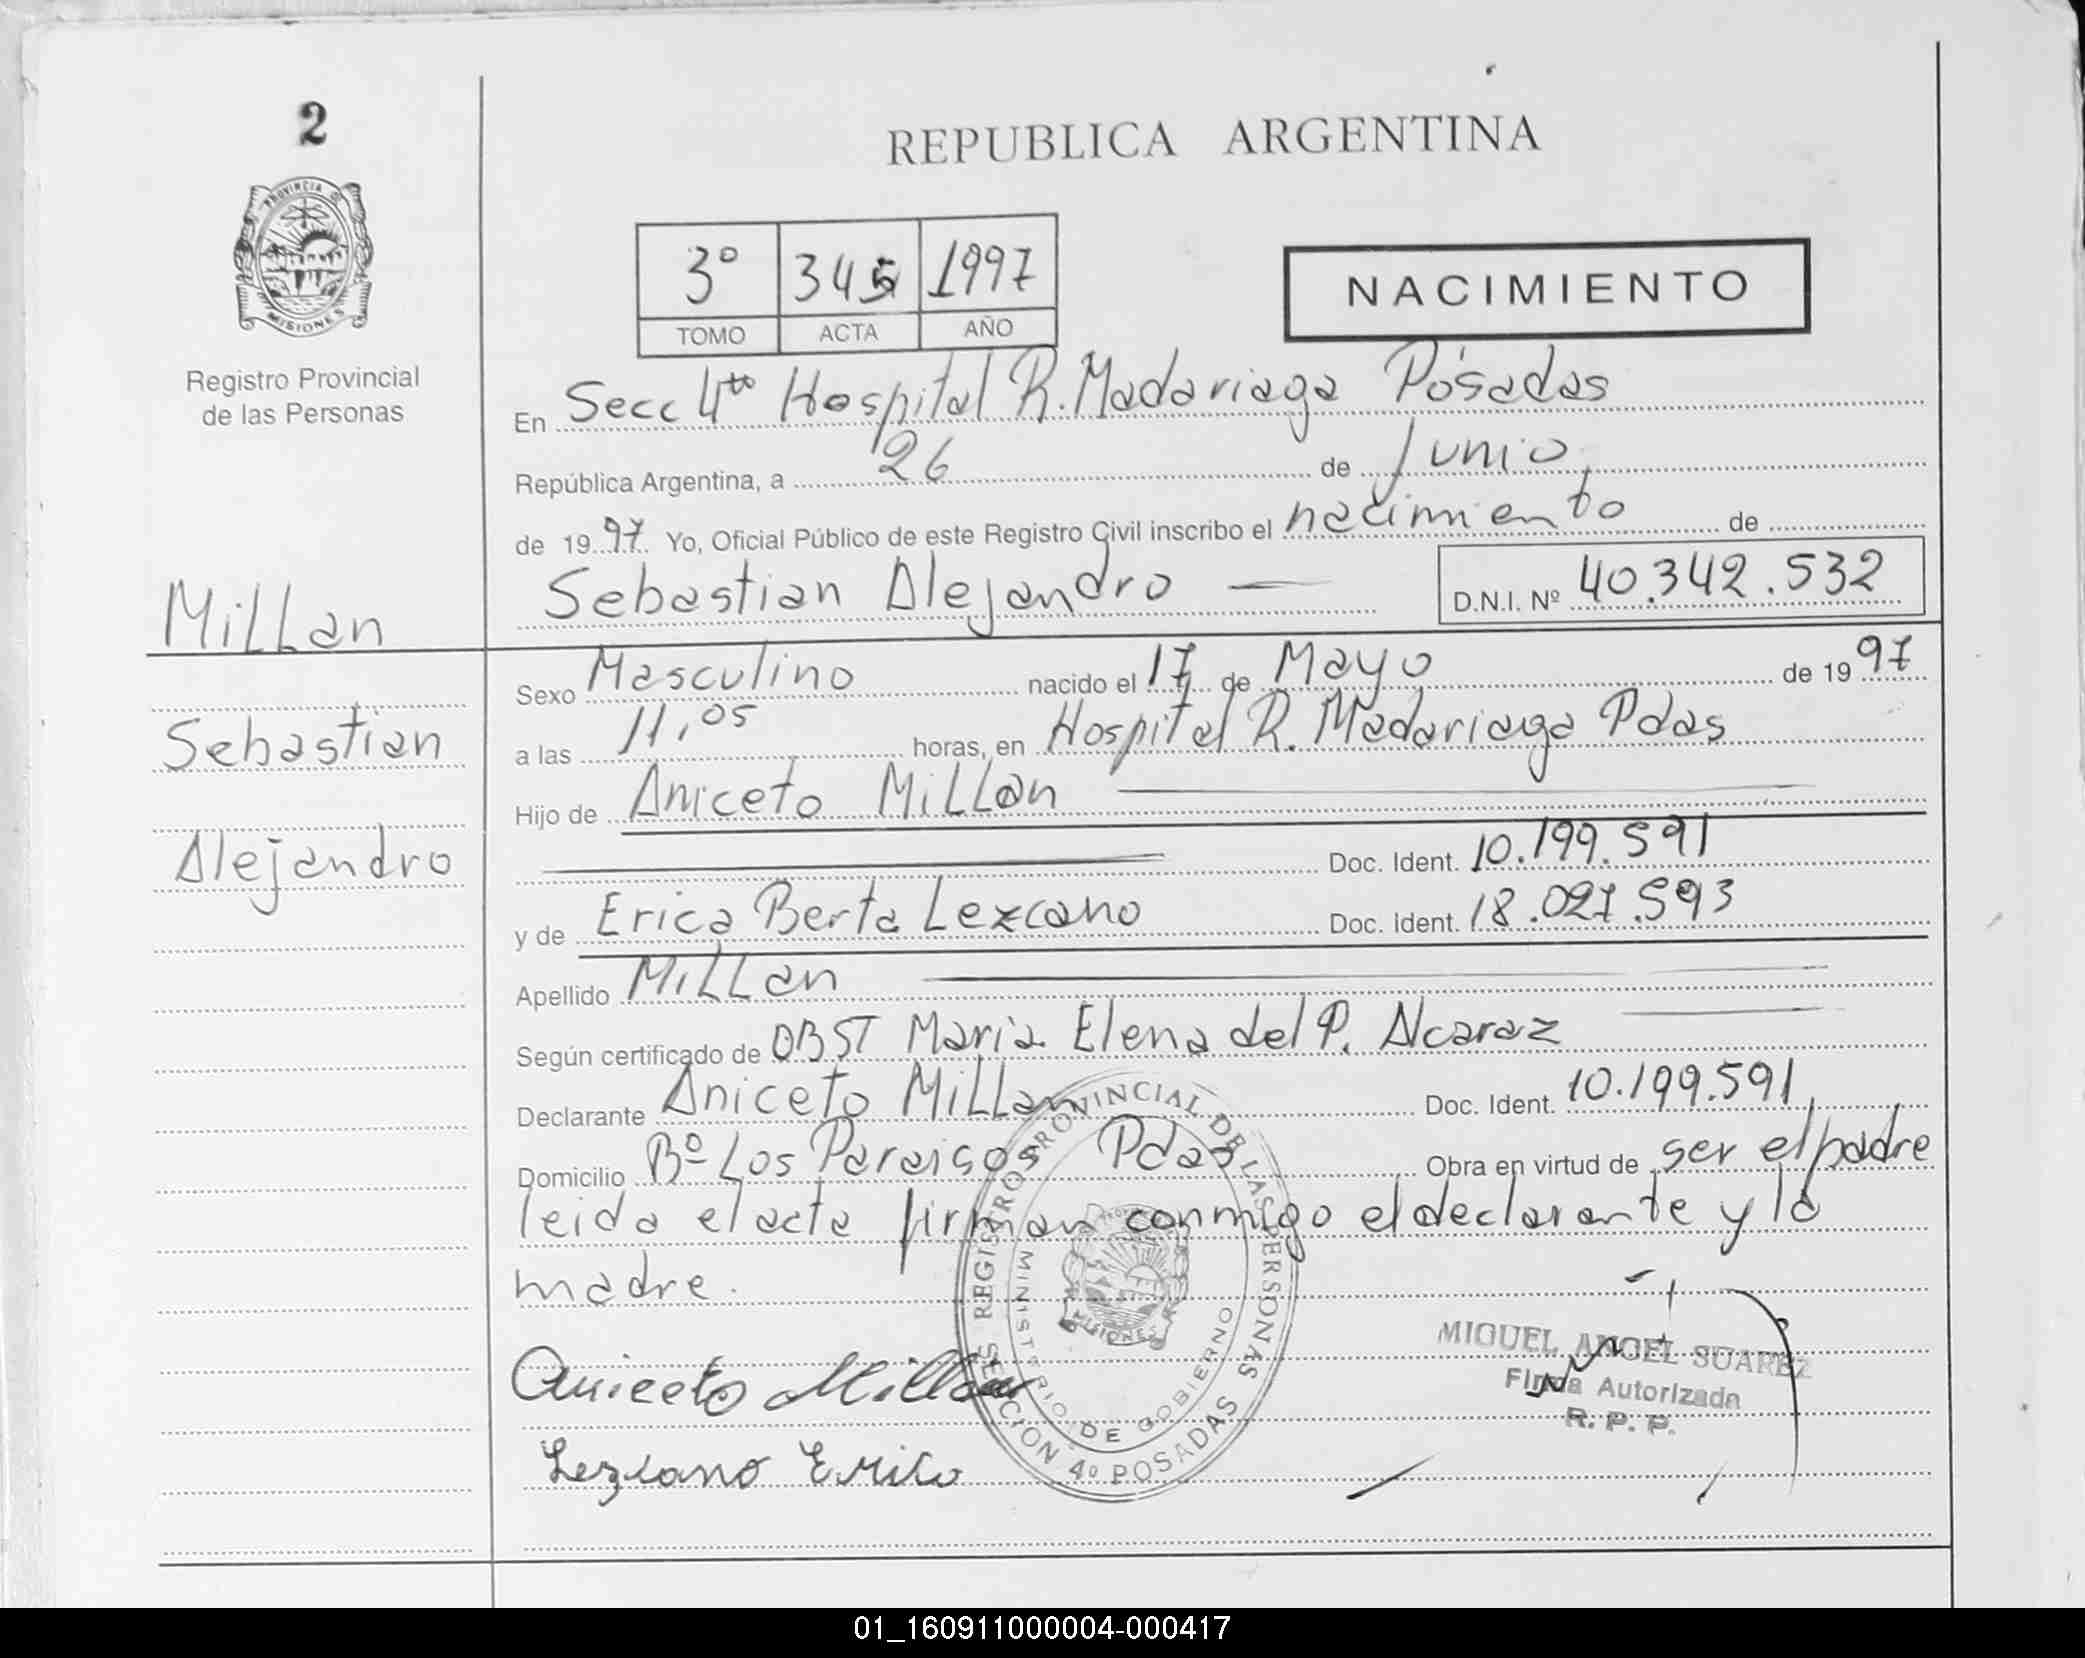 2
PROVINCIA DE
MISIONES
Registro Provincial
de las Personas
REPUBLICA ARGENTINA
3º 345 1997
TOMO ACTA AÑO
NACIMIENTO
En Secc 4ta Hospital R. Madariaga Posadas
República Argentina, a 26 de Junio
de 1997 Yo, Oficial Público de este Registro Civil inscribo el nacimiento de
Sebastian Alejandro D.N.I. Nº 40.342.532
Millan
Sexo Masculino nacido el 17 de Mayo de 1997
Sebastian
a las 11,05 horas, en Hospital R. Madariaga Pdas
Hijo de Aniceto Millan
Alejandro
Doc. Ident. 10.199.591
y de Erica Berta Lezcano Doc. Ident. 18.027.593
Apellido Millan
Según certificado de OBST Maria Elena del P. Alcaraz
Declarante Aniceto Millan Doc. Ident. 10.199.591
Domicilio Bº Los Paraisos Pdas Obra en virtud de ser el padre
leida el acta firman conmigo el declarante y la
madre.
REGISTRO PROVINCIAL DE LAS PERSONAS
MINISTERIO DE GOBIERNO
MISIONES
SECCION 4º POSADAS
Aniceto Millan
Lezcano Erica
MIGUEL ANGEL SUAREZ
Firma Autorizada
R. P. P.
01_160911000004-000417